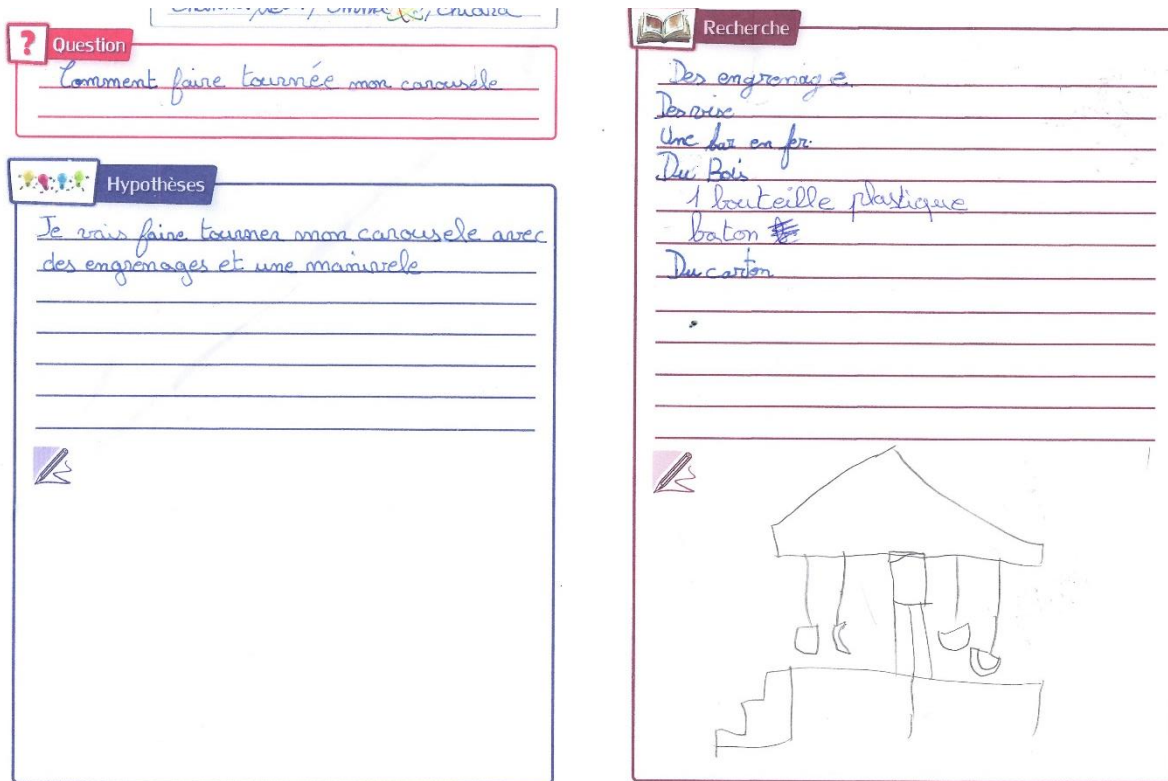 Chiara
? Question
Comment faire tournée mon carousele
Hypothèses
Je vais faire tourner mon carousele avec
des engrenages et une manivele
Recherche
Des engrenage
Des vise
Une bar en fer.
Du Bois
1 bouteille plastique
baton
Du carton